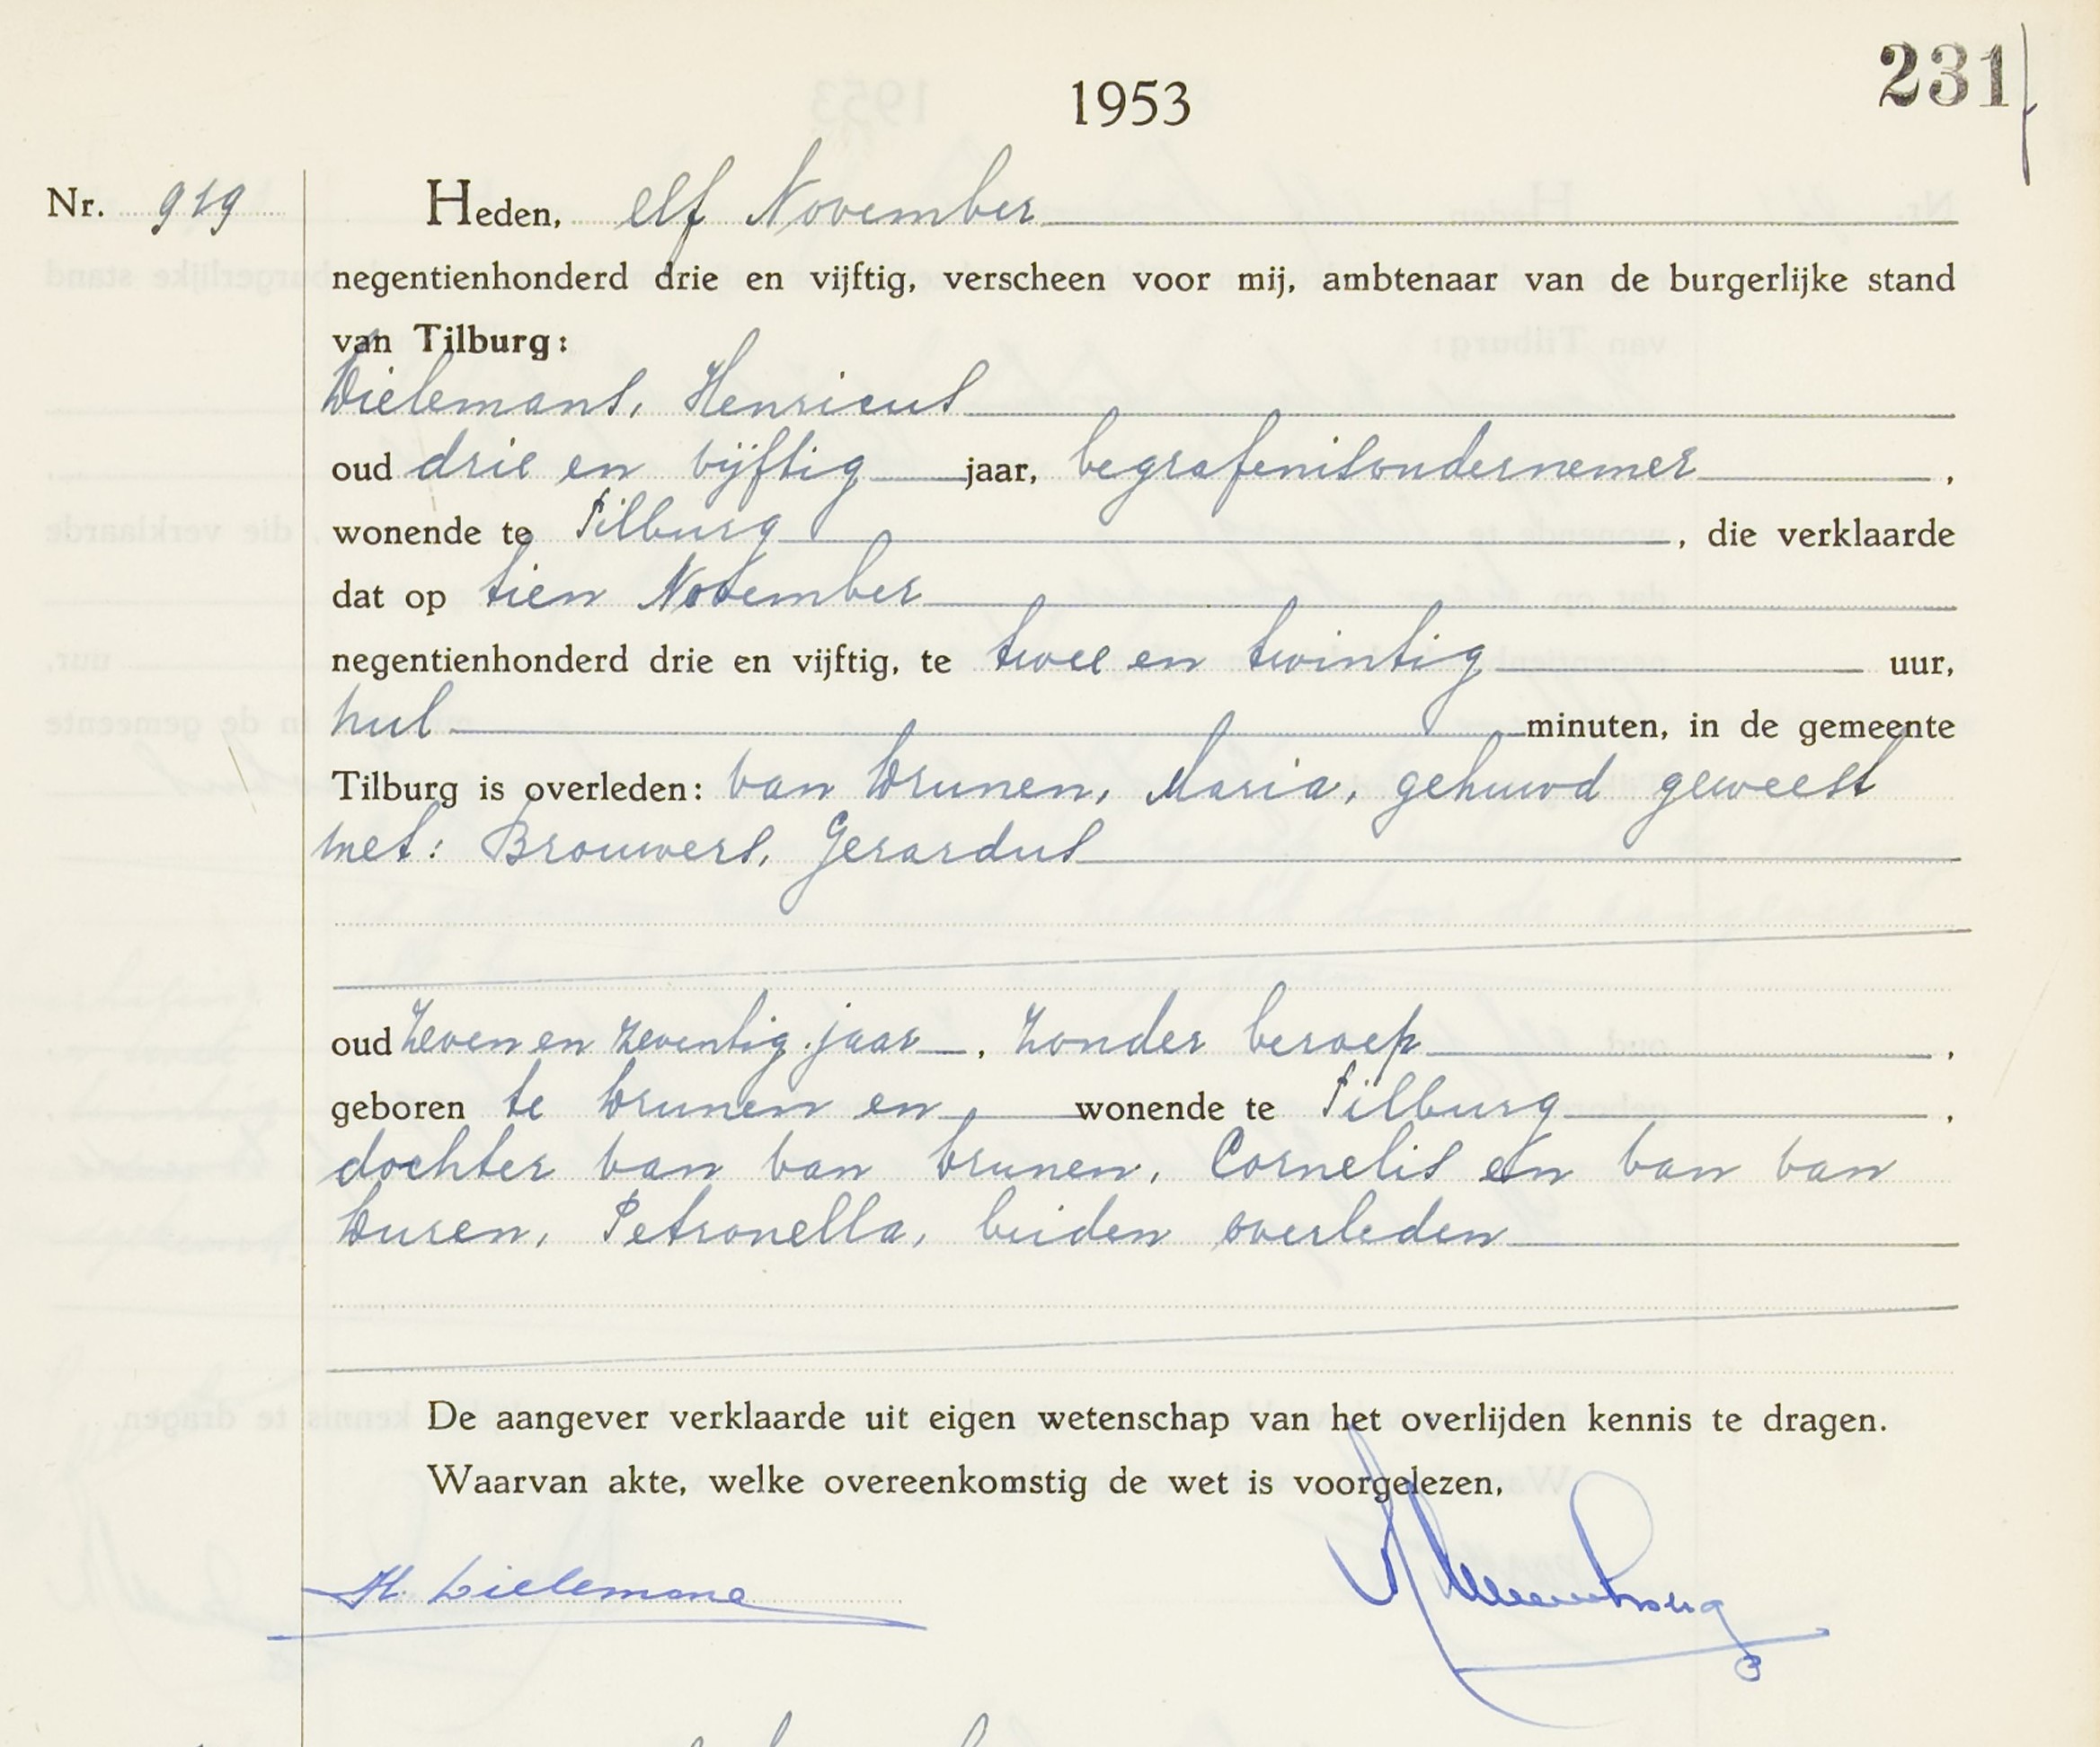 1953
231
Nr. 919
Heden, elf November
negentienhonderd drie en vijftig, verscheen voor mij, ambtenaar van de burgerlijke stand
van Tilburg:
Dielemans, Henricus
oud drie en vijftig jaar, begrafenisondernemer,
wonende te Tilburg, die verklaarde
dat op tien November
negentienhonderd drie en vijftig, te twee en twintig uur,
nul minuten, in de gemeente
Tilburg is overleden: van Drunen, Maria, gehuwd geweest
met: Brouwers, Gerardus
oud zeven en zeventig jaar, zonder beroep,
geboren te Drunen en wonende te Tilburg,
dochter van van Drunen, Cornelis en van van
Duren, Petronella, beiden overleden
De aangever verklaarde uit eigen wetenschap van het overlijden kennis te dragen.
Waarvan akte, welke overeenkomstig de wet is voorgelezen,
H. Dielemans